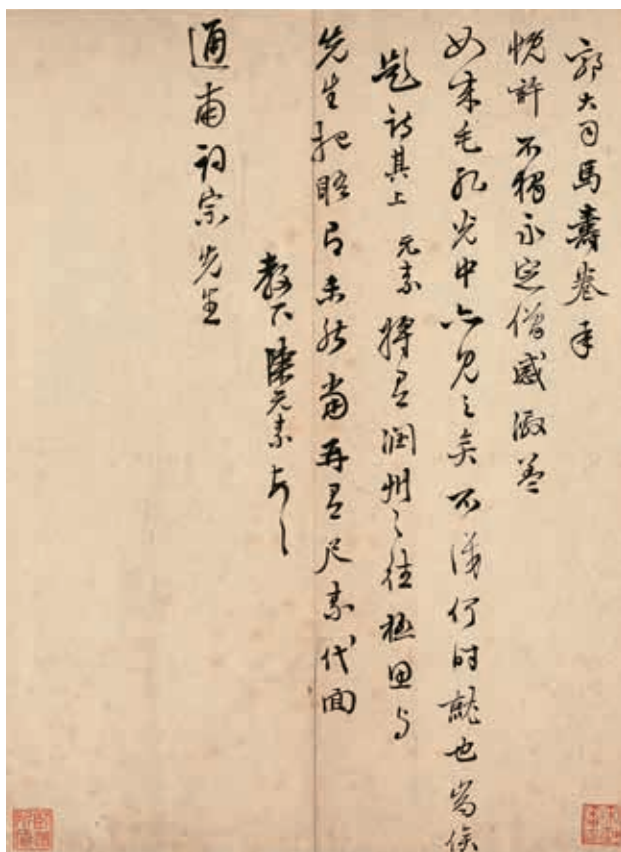 郭大司馬壽卷手
悅許不獨永定僧感激並
如來毛孔光中亦見之矣不識何時就也當俟
題詩其上元素將有潤州之往極思與
先生把晤乃未能當再有尺素代面
教下陳元素頓首
通甫詞宗先生